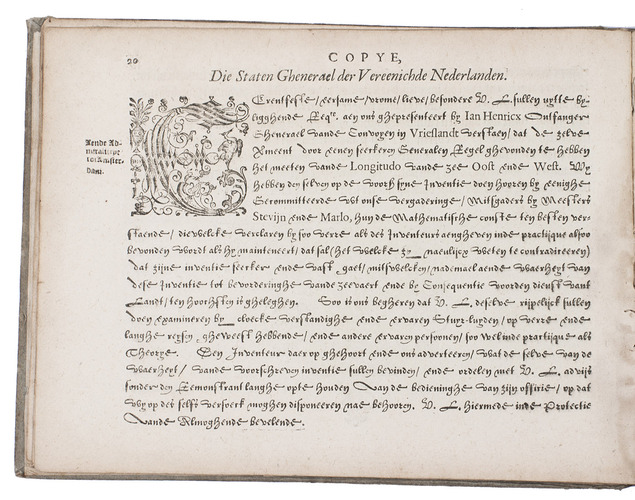 20
COPYE,
Die Staten Ghenerael der Vereenichde Nederlanden.
Aende Ad-
meraliteyt
tot Amster-
dam.
Erentfeste/eersame/vrome/lieve/besondere V. L. sullen uytte by-
ligghende Reqte. aen ons ghepresenteert by Ian Henricx Ontfanger
Ghenerael vande Convoyen in Vrieslandt verstaen/ dat de zelve
vermeent door eenen seeckeren Generalen Regel ghevonden te hebben
Het meeten vande Longitudo vande zee Oost ende West. Wy
hebben den selven op de voorsz syne Inventie doen hooren by eenighe
Gecommitteerde wt onse vergaderinge/ Mitsgaders by Meesters
Stevijn ende Marlo, hun de Mathematische conste ten besten ver-
staende/ diewelcke verclaren by soo verre als des Inventeurs aengheven inde practijque alsoo
bevonden wordt als hy mainteneert/ dat sal (het welcke zy nauelijcx weten te contradiceren)
dat zijne inventie seecker ende vast gaet/ mitswelcken/ nademael aende waerheyt van
dese Inventie tot bevorderinghe vande zeevaert ende by Consequentie voorden dienst vant
Landt/ ten hoochsten is gheleghen. Soo is ons begheren dat V. L. deselve rijpelijck sullen
doen examineren by cloecke verstandighe ende ervaren Stuyr-luyden/ op verre ende
langhe reysen gheweest hebbende/ ende andere ervaren persoonen/ soo wel inde practijque als
Theorye. Den Inventeur daer op ghehoort ende ons adverteeren/ wat de selve van de
waerheyt/ vande voorschreven inventie sullen bevinden/ ende ordelen met V. L. advijs
sonder den Remonstrant langhe opte houden van de bedieninghe van zijn officie/ op dat
wy op des selfs versoeck moghen disponeeren nae behooren. V. L. hiermede inde Protectie
vande Almoghende bevelende.